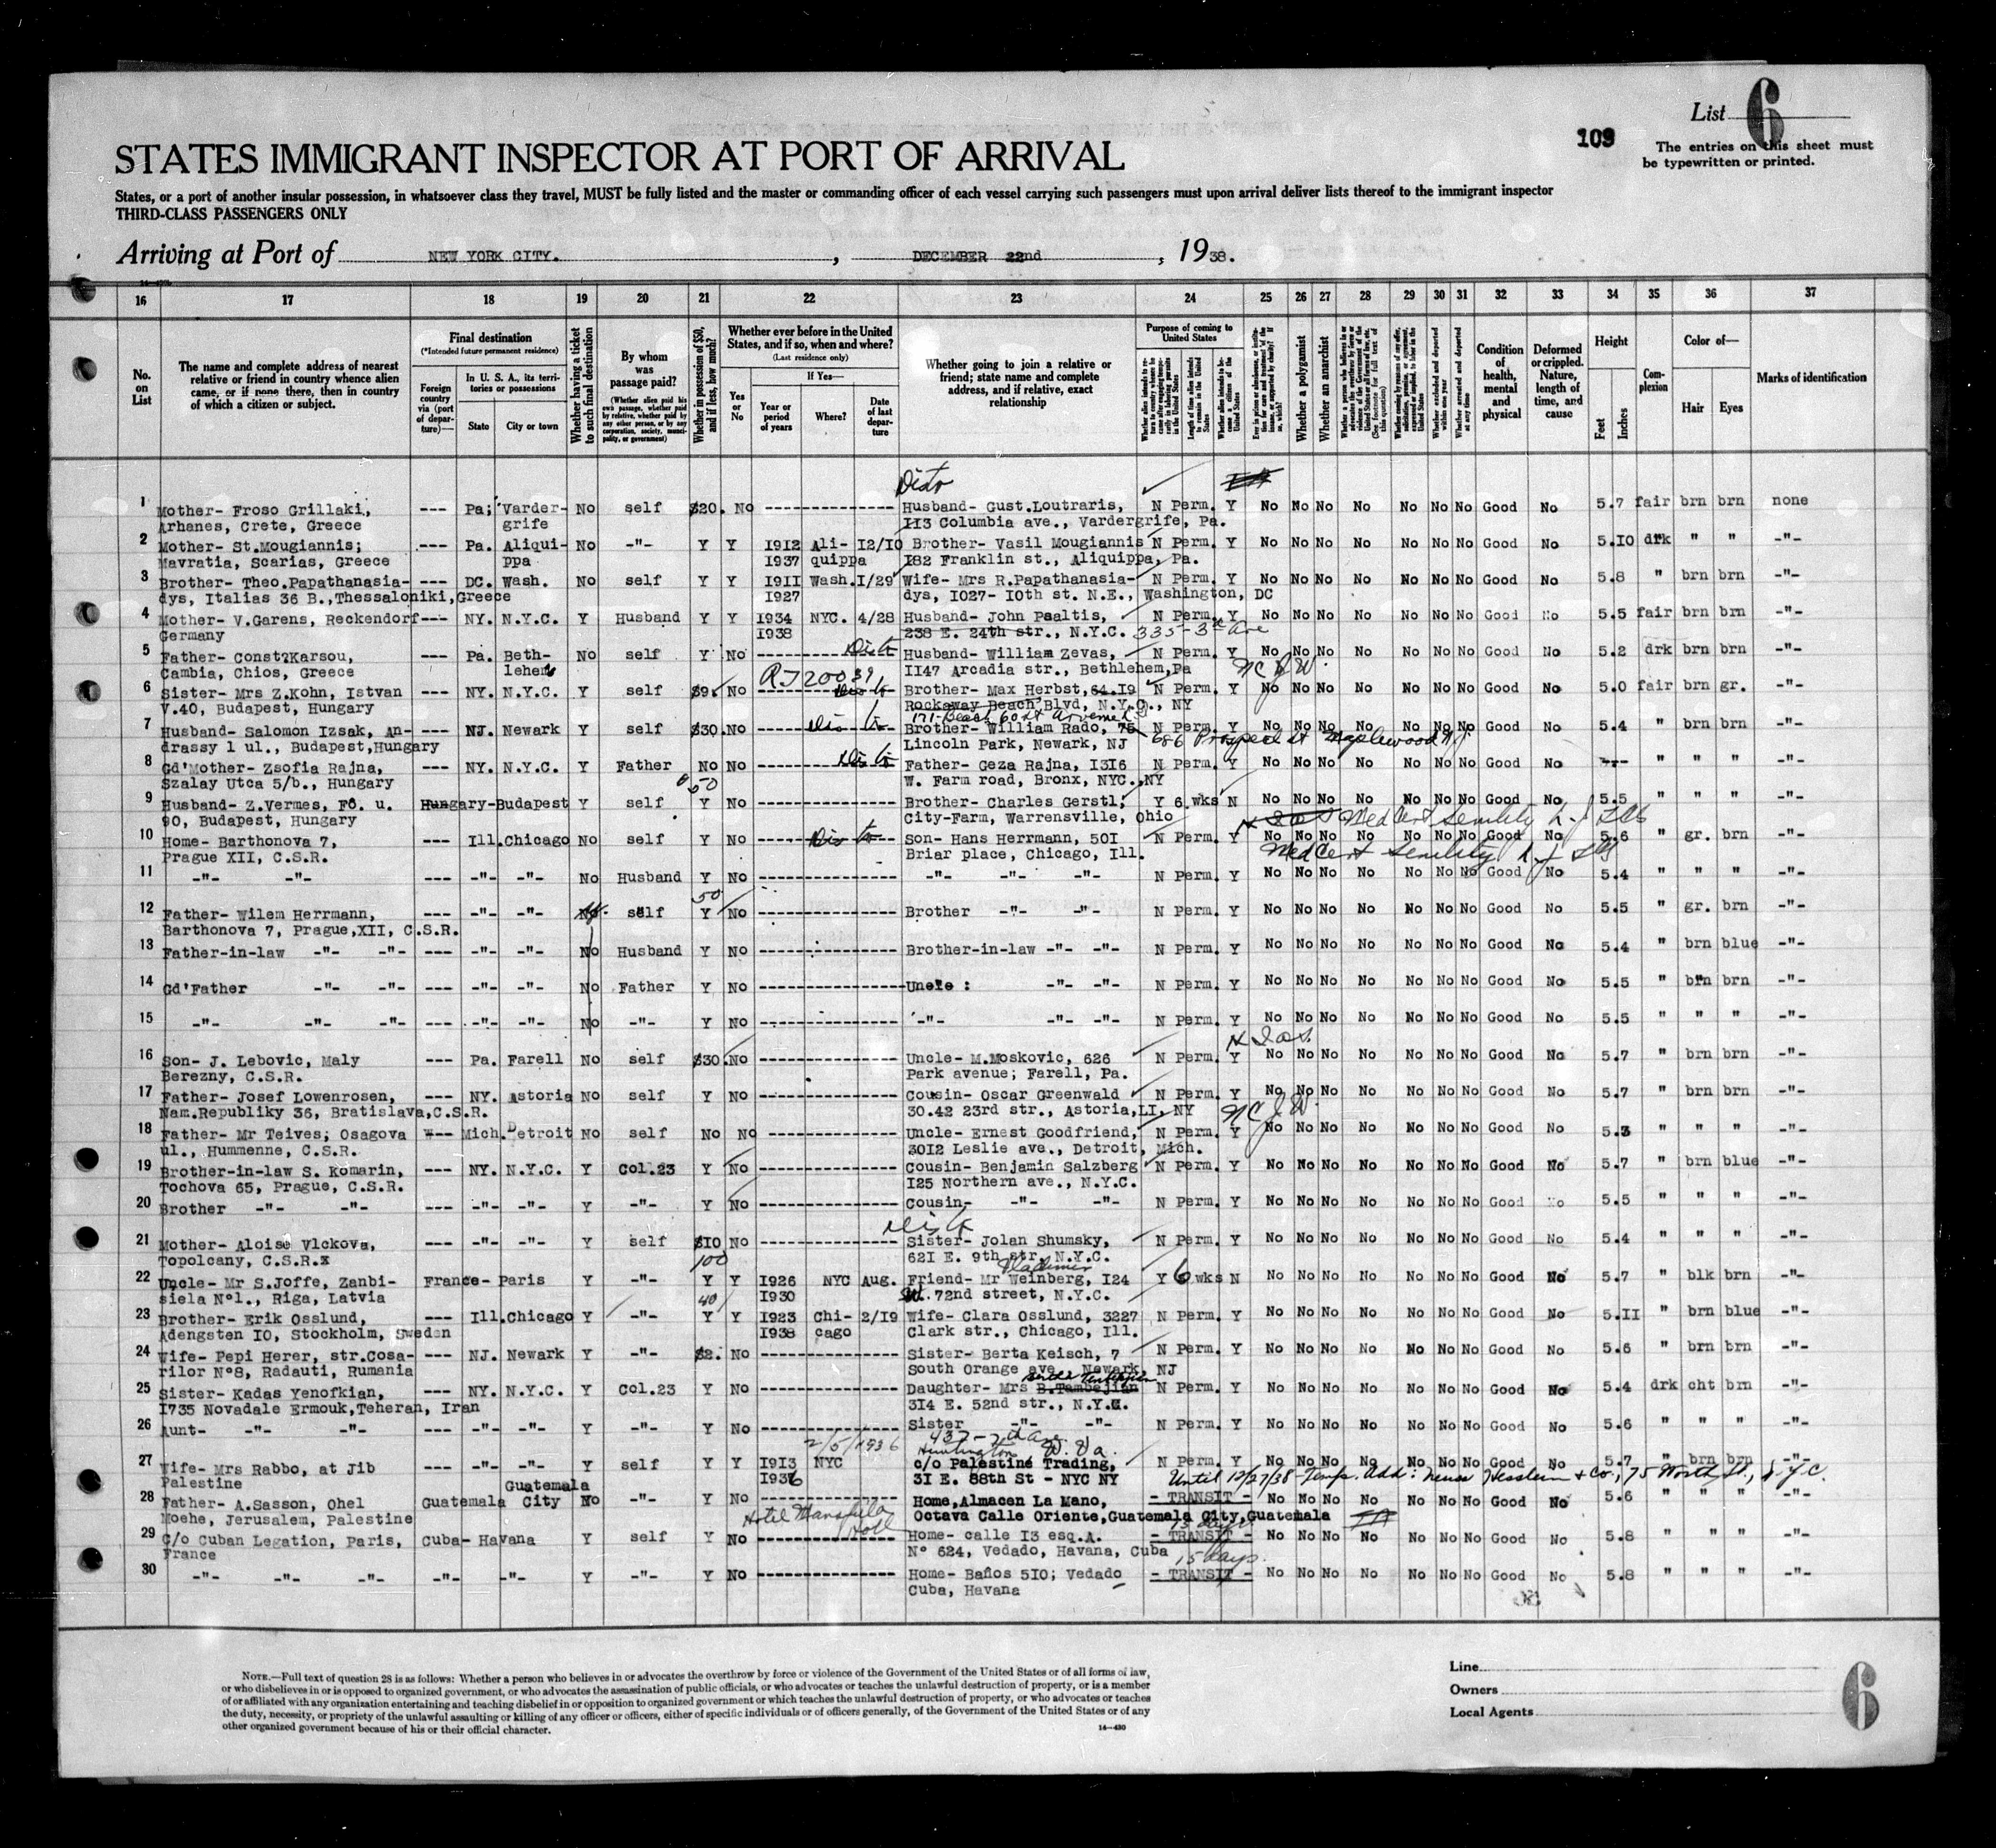 List 6
109
The entries on this sheet must
be typewritten or printed.
STATES IMMIGRANT INSPECTOR AT PORT OF ARRIVAL
States, or a port of another insular possession, in whatsoever class they travel, MUST be fully listed and the master or commanding officer of each vessel carrying such passengers must upon arrival deliver lists thereof to the immigrant inspector
THIRD-CLASS PASSENGERS ONLY
Arriving at Port of NEW YORK CITY. , DECEMBER 22nd , 1938.
16 17 18 19 20 21 22 23 24 25 26 27 28 29 30 31 32 33 34 35 36 37
No. on List
The name and complete address of nearest relative or friend in country whence alien came, or if none there, then in country of which a citizen or subject.
Final destination
(*Intended future permanent residence)
Foreign country via (port of departure)—
In U. S. A., its territories or possessions
State
City or town
Whether having a ticket to such final destination
By whom was passage paid?
(Whether alien paid his own passage, whether paid by relative, whether paid by any other person, or by any corporation, society, municipality, or government)
Whether in possession of $50, and if less, how much?
Whether ever before in the United States, and if so, when and where?
(Last residence only)
Yes or No
If Yes—
Year or period of years
Where?
Date of last departure
Whether going to join a relative or friend; state name and complete address, and if relative, exact relationship
Purpose of coming to United States
Length of time alien intends to remain in the United States
Whether a polygamist
Whether an anarchist
Condition of health, mental and physical
Deformed or crippled. Nature, length of time, and cause
Height
Feet
Inches
Complexion
Color of—
Hair
Eyes
Marks of identification
1 Mother- Froso Grillaki, --- Pa; Varder- No self $20. No -------------- Husband- Gust.Loutraris, N Perm. Y No No No No No No No Good No 5.7 fair brn brn none
Arhanes, Crete, Greece grife 113 Columbia ave., Vardergrife, Pa.
2 Mother- St.Mougiannis; --- Pa. Aliqui- No -"- Y Y 1912 Ali- 12/10 Brother- Vasil Mougiannis N Perm. Y No No No No No No No Good No 5.10 drk " " -"-
Mavratia, Scarias, Greece ppa 1937 quippa 182 Franklin st., Aliquippa, Pa.
3 Brother- Theo.Papathanasia- --- DC. Wash. No self Y Y 1911 Wash. 1/29 Wife- Mrs R.Papathanasia- N Perm. Y No No No No No No No Good No 5.8 " brn brn -"-
dys, Italias 36 B.,Thessaloniki,Greece 1927 dys, 1027- 10th st. N.E., Washington, DC
4 Mother- V.Garens, Reckendorf --- NY. N.Y.C. Y Husband Y Y 1934 NYC. 4/28 Husband- John Psaltis, N Perm. Y No No No No No No No Good No 5.5 fair brn brn -"-
Germany 1938 238 E. 24th str., N.Y.C. 335-3rd Ave
5 Father- Const?Karsou, --- Pa. Beth- No self Y No -------------- Husband- William Zevas, N Perm. Y No No No No No No No Good No 5.2 drk brn brn -"-
Cambia, Chios, Greece lehem 1147 Arcadia str., Bethlehem,Pa
6 Sister- Mrs Z.Kohn, Istvan --- NY. N.Y.C. Y self $9. No -------------- Brother- Max Herbst, 64.19 N Perm. Y No No No No No No No Good No 5.0 fair brn gr. -"-
V.40, Budapest, Hungary Rockaway Beach Blvd, N.Y.C., NY
7 Husband- Salomon Izsak, An- --- NJ. Newark Y self $30. No -------------- Brother- William Rado, 75 N Perm. Y No No No No No No No Good No 5.4 " brn brn -"-
drassy 1 ul., Budapest,Hungary Lincoln Park, Newark, NJ 686 Prospect St Maplewood NJ
8 Gd'Mother- Zsofia Rajna, --- NY. N.Y.C. Y Father No No -------------- Father- Geza Rajna, 1316 N Perm. Y No No No No No No No Good No " " " -"-
Szalay Utca 5/b., Hungary W. Farm road, Bronx, NYC.,NY
9 Husband- Z.Vermes, FŐ. u. Hungary-Budapest Y self Y No -------------- Brother- Charles Gerstl, Y 6 wks N No No No No No No No Good No 5.5 " " " -"-
90, Budapest, Hungary City-Farm, Warrensville, Ohio
10 Home- Barthonova 7, --- Ill. Chicago No self Y No -------------- Son- Hans Herrmann, 501 N Perm. Y No No No No No No No Good No 5.6 " gr. brn -"-
Prague XII, C.S.R. Briar place, Chicago, Ill. Med Cert Senility
11 -"- -"- --- -"- -"- No Husband Y No -------------- -"- -"- -"- N Perm. Y No No No No No No No Good No 5.4 " " " -"-
12 Father- Wilem Herrmann, --- -"- -"- self Y No -------------- Brother -"- -"- N Perm. Y No No No No No No No Good No 5.5 " gr. brn -"-
Barthonova 7, Prague,XII, C.S.R.
13 Father-in-law -"- -"- --- -"- -"- No Husband Y No -------------- Brother-in-law -"- -"- N Perm. Y No No No No No No No Good No 5.4 " brn blue -"-
14 Gd'Father -"- -"- --- -"- -"- No Father Y No -------------- Uncle : -"- -"- N Perm. Y No No No No No No No Good No 5.5 " brn brn -"-
15 -"- -"- -"- --- -"- -"- No -"- Y No -------------- -"- -"- -"- N Perm. Y No No No No No No No Good No 5.5 " " " -"-
16 Son- J. Lebovic, Maly --- Pa. Farell No self $30. No -------------- Uncle- M.Moskovic, 626 N Perm. Y No No No No No No No Good No 5.7 " brn brn -"-
Berezny, C.S.R. Park avenue; Farell, Pa.
17 Father- Josef Lowenrosen, --- NY. Astoria No self Y No -------------- Cousin- Oscar Greenwald N Perm. Y No No No No No No No Good No 5.7 " brn brn -"-
Nam.Republiky 36, Bratislava,C.S.R. 30.42 23rd str., Astoria,LI, NY
18 Father- Mr Teives; Osagova --- Mich. Detroit No self No No -------------- Uncle- Ernest Goodfriend, N Perm. Y No No No No No No No Good No 5.3 " " " -"-
ul., Hummenne, C.S.R. 3012 Leslie ave., Detroit, Mich.
19 Brother-in-law S. Komarin, --- NY. N.Y.C. Y Col.23 Y No -------------- Cousin- Benjamin Salzberg N Perm. Y No No No No No No No Good No 5.7 " brn blue -"-
Tochova 65, Prague, C.S.R. 125 Northern ave., N.Y.C.
20 Brother -"- -"- --- -"- -"- Y -"- Y No -------------- Cousin- -"- -"- N Perm. Y No No No No No No No Good No 5.5 " " " -"-
21 Mother- Aloise Vlckova, --- -"- -"- Y self $10 No -------------- Sister- Jolan Shumsky, N Perm. Y No No No No No No No Good No 5.4 " " " -"-
Topolcany, C.S.R.x 621 E. 9th str, N.Y.C.
22 Uncle- Mr S.Joffe, Zanbi- France- Paris Y -"- 100 Y Y 1926 NYC Aug. Friend- Mr Vladimir Weinberg, 124 Y 6 wks N No No No No No No No Good No 5.7 " blk brn -"-
siela N°1., Riga, Latvia 1930 W. 72nd street, N.Y.C.
23 Brother- Erik Osslund, --- Ill. Chicago Y -"- 40 Y Y 1923 Chi- 2/19 Wife- Clara Osslund, 3227 N Perm. Y No No No No No No No Good No 5.11 " brn blue -"-
Adengsten 10, Stockholm, Sweden 1938 cago Clark str., Chicago, Ill.
24 Wife- Pepi Herer, str.Cosa- --- NJ. Newark Y -"- $2. No -------------- Sister- Berta Keisch, 7 N Perm. Y No No No No No No No Good No 5.6 " brn brn -"-
rilor N°8, Radauti, Rumania South Orange ave., Newark, NJ
25 Sister- Kadas Yenofkian, --- NY. N.Y.C. Y Col.23 Y No -------------- Daughter- Mrs B.Tambejian N Perm. Y No No No No No No No Good No 5.4 drk cht brn -"-
1735 Novadale Ermouk,Teheran, Iran 314 E. 52nd str., N.Y.C.
26 Aunt- -"- -"- --- -"- -"- Y -"- Y No -------------- Sister -"- -"- N Perm. Y No No No No No No No Good No 5.6 " " " -"-
2/5/1936 437-7th Ave Huntington W. Va.
27 Wife- Mrs Rabbo, at Jib --- -"- -"- Y self Y Y 1913 NYC c/o Palestine Trading, N Perm. Y No No No No No No No Good No 5.7 " brn brn -"-
Palestine 1936 31 E. 88th St - NYC NY Until 12/27/38 Temp. Add: Hesslein & Co., 75 Worth St., N.Y.C.
28 Father- A.Sasson, Ohel Guatemala Guatemala City No -"- Y No -------------- Home,Almacen La Mano, - TRANSIT - No No No No No No No Good No 5.6 " " " -"-
Moehe, Jerusalem, Palestine Octava Calle Oriente,Guatemala City,Guatemala
29 C/o Cuban Legation, Paris, Cuba- Havana Y self Y No -------------- Home- calle 13 esq.A. - TRANSIT - No No No No No No No Good No 5.8 " " " -"-
France N° 624, Vedado, Havana, Cuba 15 days
30 -"- -"- -"- -"- -"- Y -"- Y No -------------- Home- Baños 510; Vedado - TRANSIT - No No No No No No No Good No 5.8 " " " -"-
Cuba, Havana
NOTE.—Full text of question 28 is as follows: Whether a person who believes in or advocates the overthrow by force or violence of the Government of the United States or of all forms of law,
or who disbelieves in or is opposed to organized government, or who advocates the assassination of public officials, or who advocates or teaches the unlawful destruction of property, or is a member
of or affiliated with any organization entertaining and teaching disbelief in or opposition to organized government or which teaches the unlawful destruction of property, or who advocates or teaches
the duty, necessity, or propriety of the unlawful assaulting or killing of any officer or officers, either of specific individuals or of officers generally, of the Government of the United States or of any
other organized government because of his or their official character.
14—430
Line
Owners
Local Agents
6